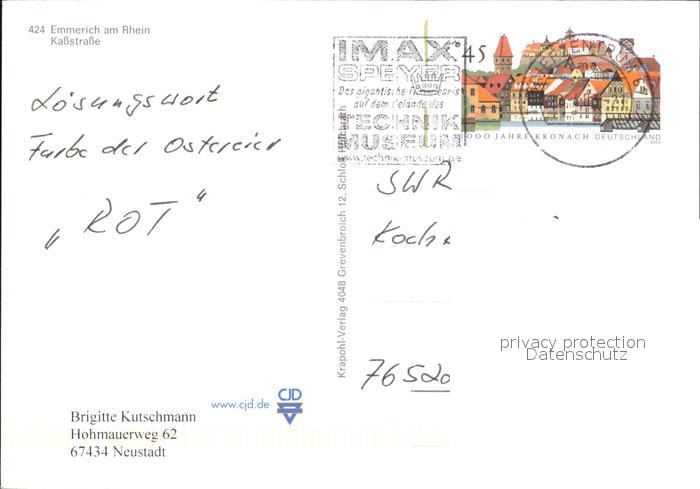 424 Emmerich am Rhein
Kaßstraße
Lösungswort
Farbe der Ostereier
„ROT"
IMAX
SPEYER
Das gigantische Filmerlebnis
auf dem Gelände des
TECHNIK
MUSEUM
www.technik-museum.de
45
1000 JAHRE KRONACH DEUTSCHLAND
2003
Krapohl-Verlag 4048 Grevenbroich 12, Schloß Hülchrath
SWR
Koch
76520
privacy protection
Datenschutz
www.cjd.de
CJD
Brigitte Kutschmann
Hohmauerweg 62
67434 Neustadt